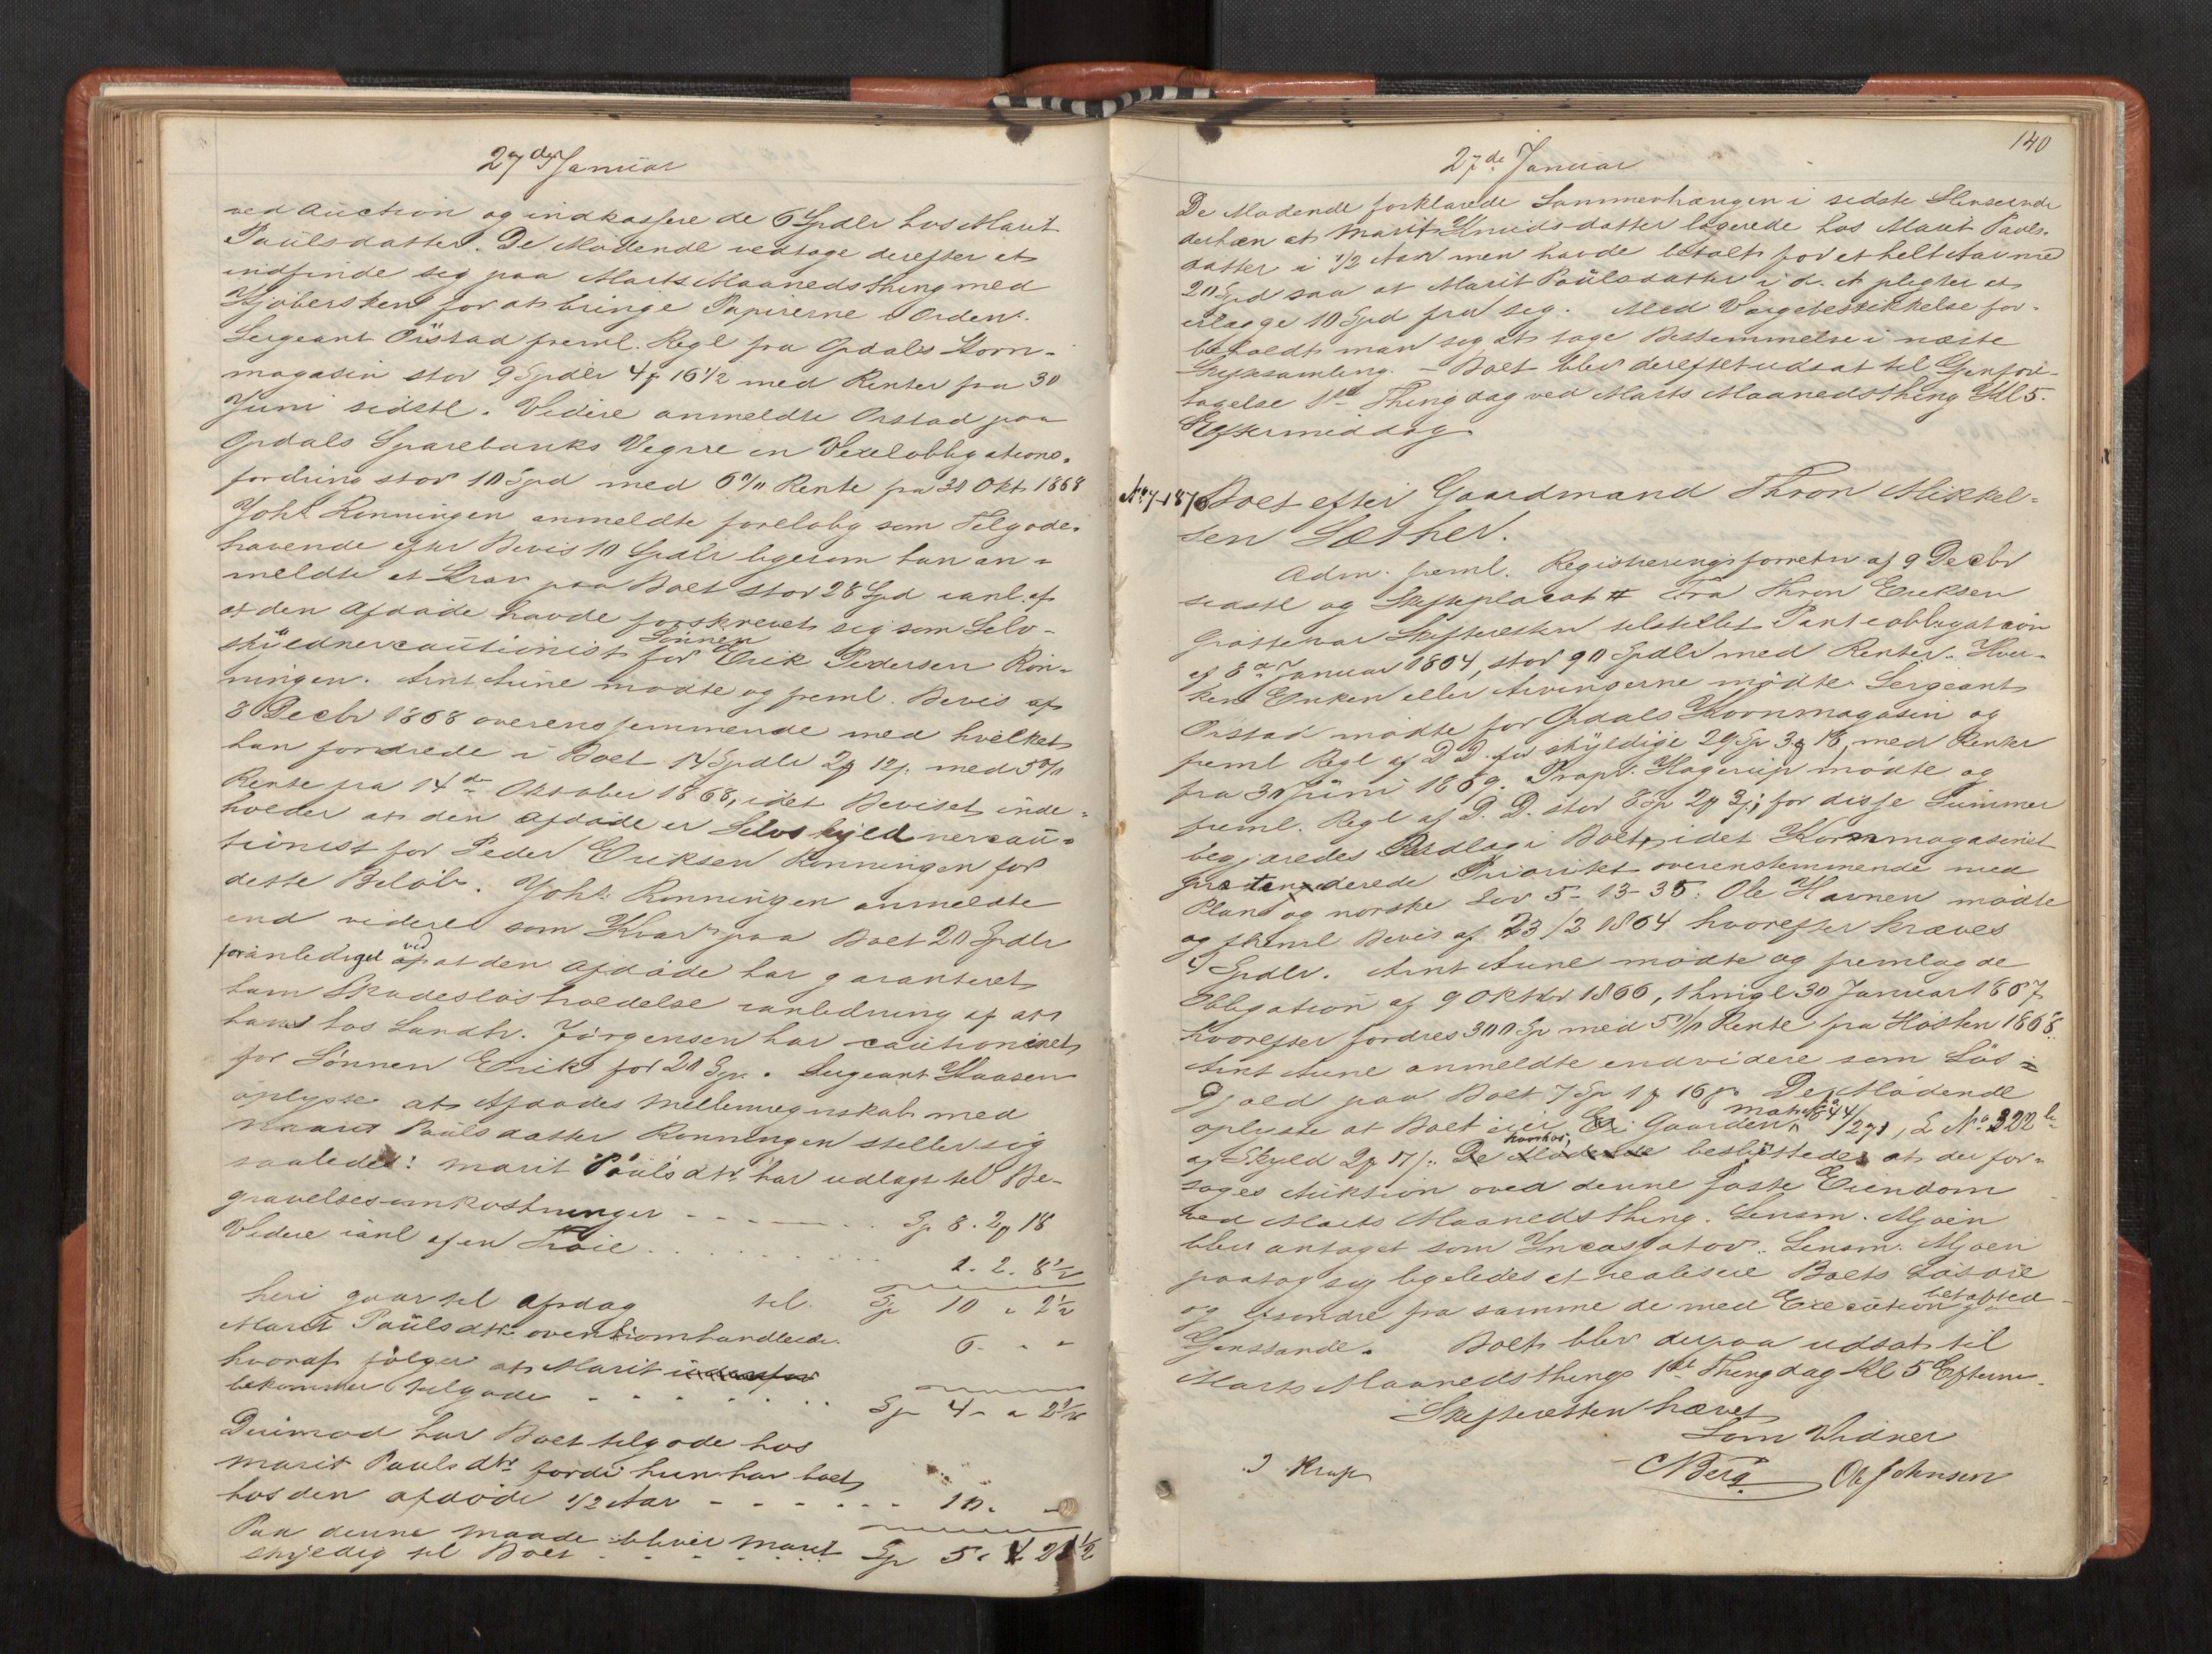 27de Januar
ved Auction og indkassere de 6 Spdlr hos Marit
Paulsdatter. De Mødende vedtoge derefter at
indfinde sig paa Marts Maanedsthing med
Kjøbersken for at bringe Papirerne i Orden.
Sergeant Örstad freml. Regl fra Opdals Korn-
magasin stor 9 Spdlr 4 16 1/2 med Renter fra 30
Juni sidstl. Videre anmeldte Örstad paa
Opdals Sparebanks Vegne en Vexelobligations-
fordring stor 10 Spd med 6 % Rente fra 20 Okt 1868
Joht Rønningen anmeldte foreløbig som Tilgode-
havende efter Bevis 10 Spdlr ligesom han an-
meldte et Krav paa Boet stor 28 Spd ianl. af
at den Afdøde havde forskrevet sig som Selv-
skyldnercautionist for Sønnen Erik Pedersen Røn-
ningen. Arnt Aune mødte og freml. Bevis af
3 Decbr 1868 overensstemmende med hvilket
han fordrede i Boet 14 Spdlr 2 12 med 5 %
Rente fra 14de Oktober 1868, idet Beviset inde-
holder at den Afdøde er Selvskyldnercau-
tionist for Peder Eriksen Rønningen for
dette Beløb. Joht Rønningen anmeldte
end videre som Krav paa Boet 20 Spdlr
foranlediget ved at den Afdøde har garanteret
ham Skadesløsholdelse ianledning af at
han hos Landh. Jørgensen har cautioneret
for Sønnen Erik for 20 Sp. Sergeant Haasen
oplyste at Afdødes Mellemregnskab med
Marit Paulsdatter Rønningen stiller sig
saaledes: Marit Paulsdtr. har udlagt til Be-
gravelsesomkostninger - - - - Sp 8. 2 18
Videre ianl af en Trøie . . . . 1. 2. 8 1/2
til. Sp 10 " 2 1/2
heri gaar til Afdag
Marit Paulsdtr ovenfromhandlede 6. " "
hvoraf følger at Marit
bekommer tilgode - - - - Sp 4 " 2 1/2
Derimod har Boet tilgode hos
Marit Paulsdtr fordi hun har boet
hos den afdøde 1/2 Aar - - - - 10. "
Paa denne Maade bliver Marit
skyldig til Boet - - - - Sp 5.
140
27de Januar
De Mødende forklarede Sammenhængen i sidste Henseende
derhen at Marit Knudsdatter logerede hos Marit Pauls-
datter i 1/2 Aar men havde betalt for et helt Aar med
20 Spd saa at Marit Paulsdatter i d. A pligter at
erlægge 10 Spd fra sig. Med Vergebeskikkelse for-
beholdt man sig at tage Bestemmelse i næste
Skiftesamling. - Boet blev derefter udsat til Genfore-
tagelse 1ste Thingdag ved Marts Maanedsthing Kl 5.
Eftermiddag.
No 7-1870 Boet efter Gaardmand Thron Mikkel-
sen Sæther.
Adm. freml. Registreringsforretn af 9 Decbr
sidstl og Skifteplacat # Fra Thron Eriksen
Skifteretten tilstillet Panteobligation
af 8de Januar 1864, stor 90 Spdlr med Renter. Hver-
ken Enken eller Arvingerne mødte. Sergeant
Örstad mødte for Opdals Kornmagasin og
freml Regl af D. D. for skyldige 29 Sp 3 18, med Renter
fra 30 Juni 1869. Propr. Hagerup mødte og
freml. Regl af D. D. stor 8 Sp 2 3; for disse Summer
begjæredes Udlæg i Boet, idet Kornmagasinet
prætenderede Prioritet overenstemmende med
Plan og norske Lov 5-13-35. Ole Havnen mødte
og freml Bevis af 23/2 1864 hvorefter kræves
4 Spdlr. Arnt Aune mødte og fremlagde
Obligation af 9 Oktbr 1866, thingl 30 Januar 1867
hvorefter fordres 300 Sp med 5 % Rente fra Høsten 1868.
Arnt Aune anmeldte endvidere som Løs-
gjæld paa Boet 7 Sp 1 16. De Mødende
oplyste at Boet eier Gaarden, matr No 44/271, L No 322 b
af Skyld 2 17. hvorhos, De Mødende besluttede, at der for-
søges Auktion over denne faste Eiendom
ved Marts Maanedsthing. Lensm. Mjøen
blev antaget som Incassator. Lensm. Mjøen
paatog sig ligeledes at realisere Boets Løsøre
og afsondre fra samme de med Execution behæftede
Genstande. Boet blev derpaa udsat til
Marts Maanedsthings 1ste Thingdag Kl 5 Efterm.
Skifteretten hævet
Som Vidner
CBerg Ol Johnsen